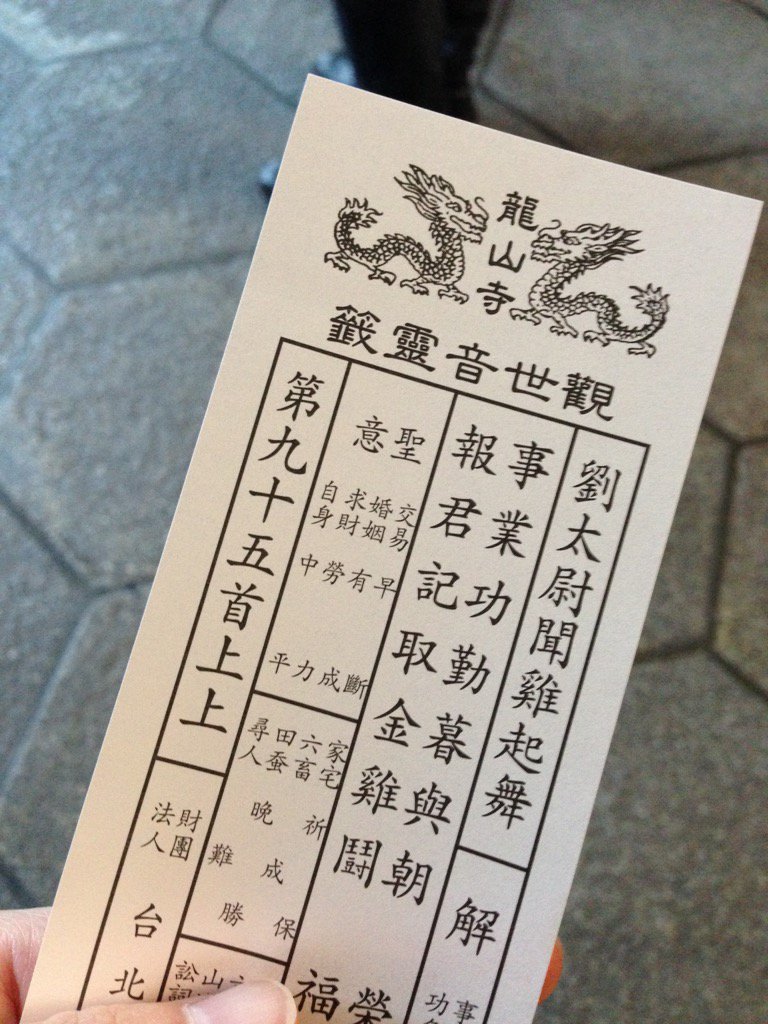 龍山寺
觀世音靈籤
劉太尉聞雞起舞
解
事
功
事業功勤暮與朝
榮
報君記取金雞鬪
福
聖意
交易 早 斷
婚姻 有 成
求財 勞 力
自身 中 平
家宅 祈 保
六畜 成
田蚕 晚 勝
尋人 難
山
訟詞
第九十五首上上
財團
法人
台北